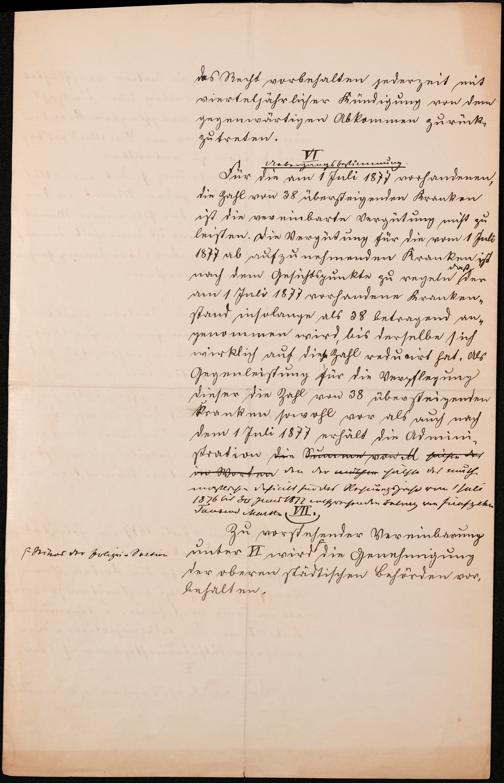 das Recht vorbehalten jederzeit mit
vierteljährlicher Kündigung von dem
gegenwärtigen Abkommen zurück-
zutreten.
VI
Uebergangsbestimmung.
Für die am 1 Juli 1877 vorhandenen,
die Zahl von 38 übersteigenden Kranken
ist die vereinbarte Vergütung nicht zu
leisten. Die Vergütung für die vom 1 Juli
1877 ab aufzunehmenden Kranken ist
nach dem Gesichtspunkte zu regeln daß der
am 1 Juli 1877 vorhandene Kranken-
stand, insolange als 38 betragend an-
genommen wird, bis derselbe sich
wirklich auf diese Zahl reducirt hat. Als
Gegenleistung für die Verpflegung
dieser die Zahl von 38 übersteigenden
Kranken sowohl vor als auch nach
dem 1 Juli 1877 erhält die Admini-
stration die Summe von M
in Worten den der Hälfte des
Deficits für das Rechnungsjahr vom 1 Juli
1876 bis 30 Juni 1877 entsprechenden Betrag von fünfzehn
Tausend Mark.
VII.
Zu vorstehender Vereinbarung
unter VI wird die Genehmigung
der oberen städtischen Behörden vor-
behalten.